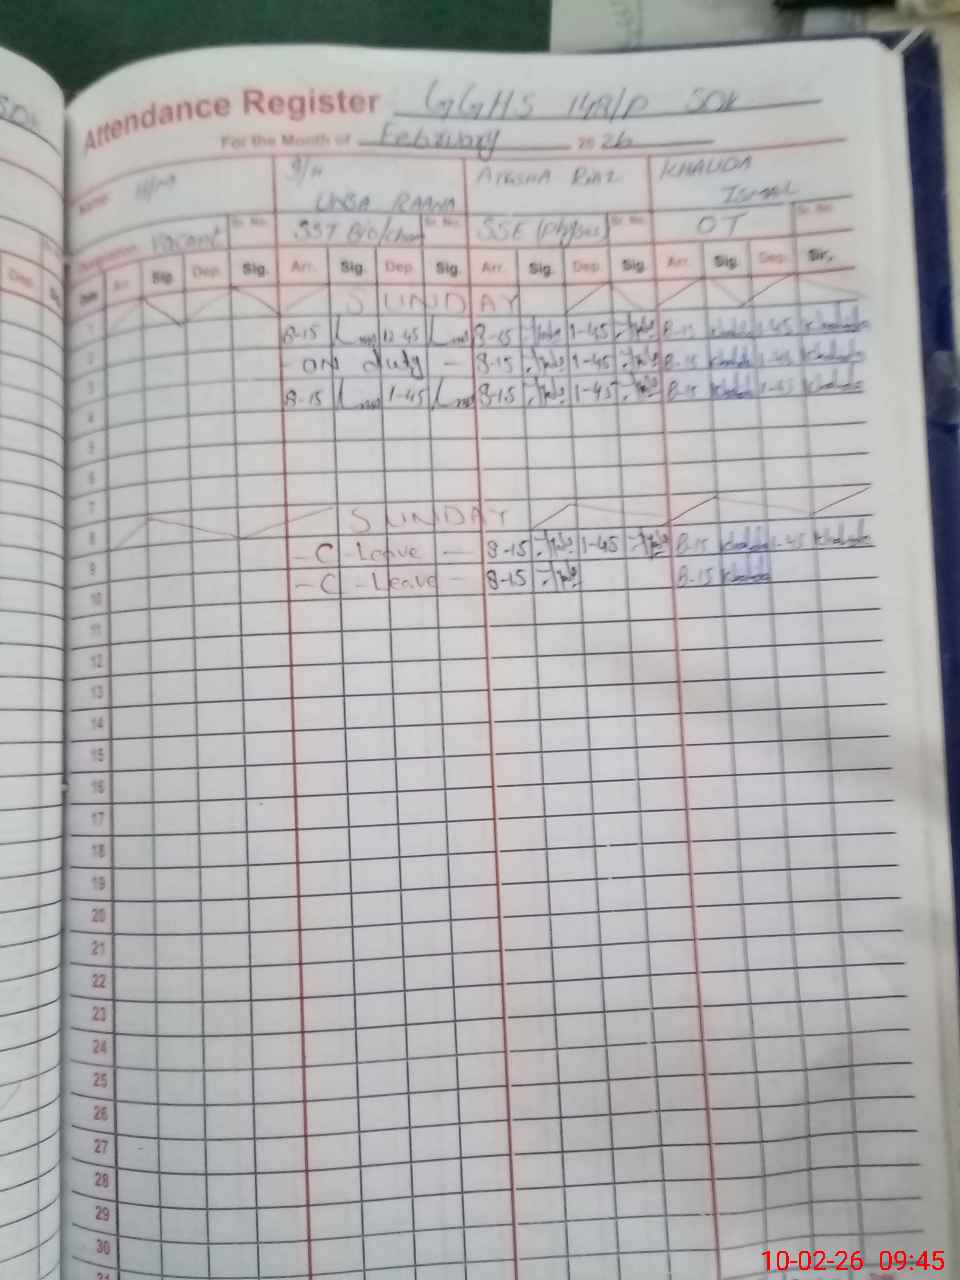 Attendance Register GGHS 148/P SDK
For the Month of February 20 26
Name H/M S/H UNSA RAANA AYESHA RIAZ KHALIDA ISMAIL
Designation Vacant Sr. No. SST Bio/chem Sr. No. SSE (Physics) Sr. No. OT Sr. No.
Date Arr. Sig. Dep. Sig. Arr. Sig. Dep. Sig. Arr. Sig. Dep. Sig. Arr. Sig. Dep. Sig.
1 SUNDAY
2 8-15 12-45 8-15 1-45 8-15 Khalida 1-45 Khalida
3 - on duty - 8-15 1-45 8-15 Khalida 1-45 Khalida
4 8-15 1-45 8-15 1-45 8-15 Khalida 1-45 Khalida
5
6
7
8 SUNDAY
9 - C - Leave - 8-15 1-45 8-15 Khalida 1-45 Khalida
10 - C - Leave - 8-15 8-15 Khalida
11
12
13
14
15
16
17
18
19
20
21
22
23
24
25
26
27
28
29
30
31
10-02-26 09:45